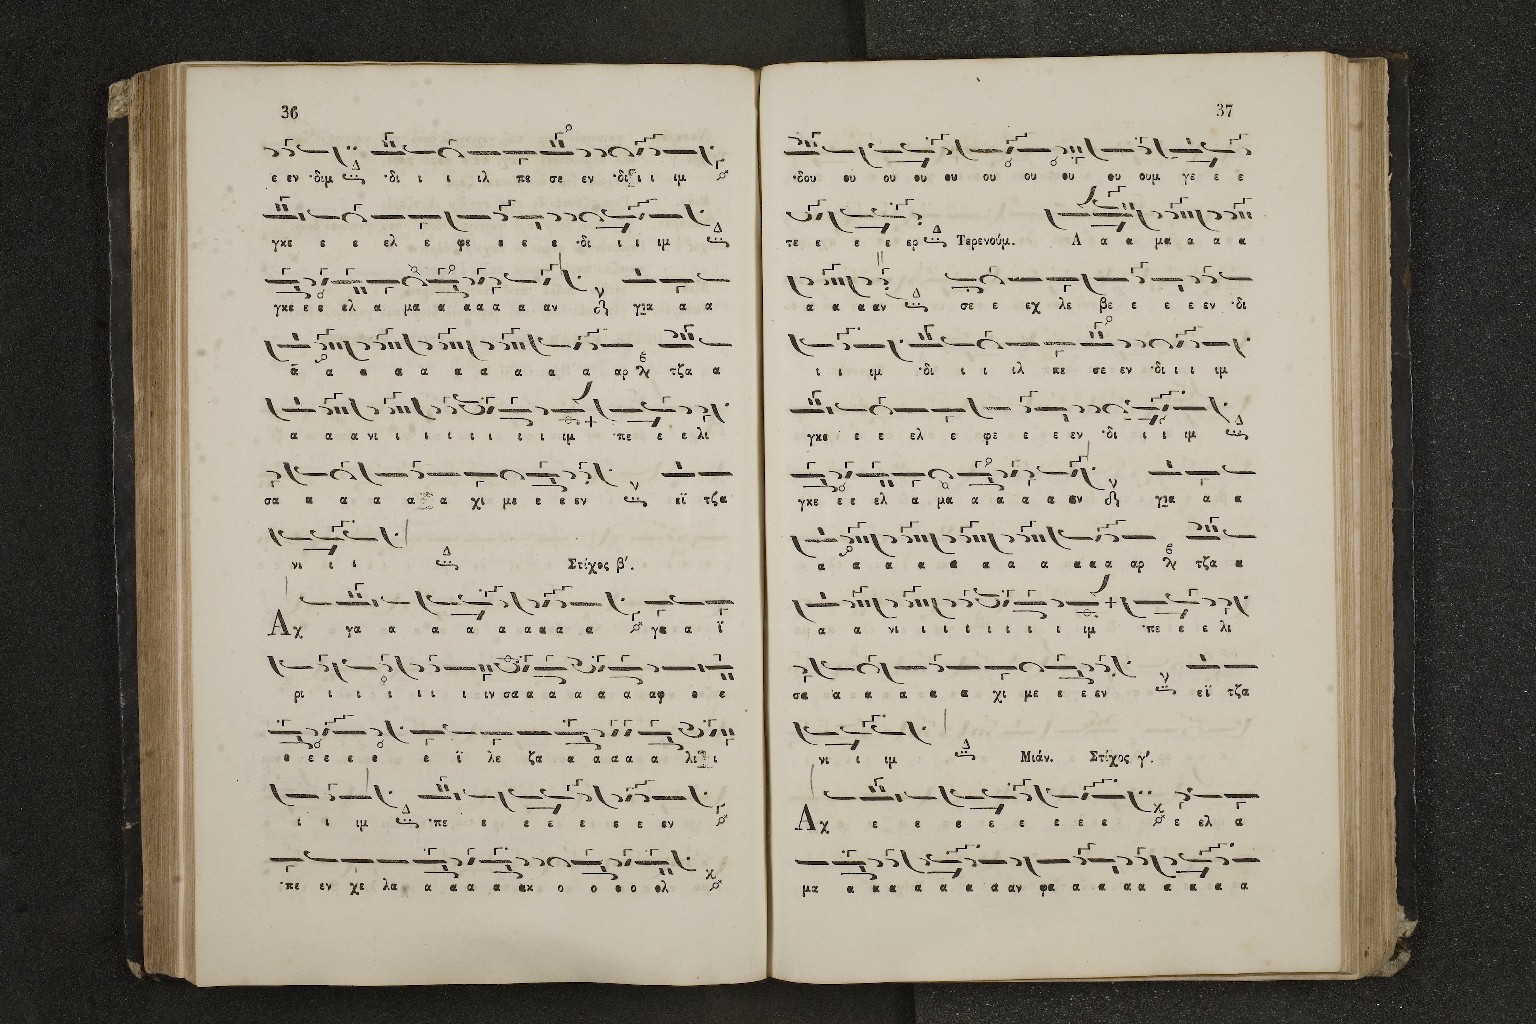 36
ε εν ·διμ ·δι ι ι ιλ πε σε εν ·δι ι ι ιμ
γκε ε ε ελ ε φε ε ε ε ·δι ι ι ιμ
γκε ε ε ελ α μα α α α α α αν για α α
α α α α α α α α α α αρ τζα α
α α α νι ι ι ι ι ι ι ιμ ·πε ε ε λι
σα α α α α α α χι με ε ε εν εϊ τζα
νι ι ι Στίχος β'.
Αχ γα α α α α α α α α γα α ϊ
ρι ι ι ι ι ι ι ιν σα α α α α α α αφ ε ε
ε ε ε ε ε ε ϊ λε ζα α α α α α λι ι
ι ι ιμ ·πε ε ε ε ε ε ε εν
·πε εν χε λα α α α α ακ ο ο ο ο ολ
37
·δου ου ου ου ου ου ου ου ου ουμ γε ε ε
τε ε ε ε ερ Τερενούμ. Α α α μα α α α
α α α αν σε ε εχ λε βε ε ε ε εν ·δι
ι ι ιμ ·δι ι ι ιλ πε σε εν ·δι ι ι ιμ
γκε ε ε ελ ε φε ε ε εν ·δι ι ι ιμ
γκε ε ε ελ α μα α α α α αν για α α
α α α α α α α α α α α αρ τζα α
α α νι ι ι ι ι ι ι ιμ ·πε ε ε λι
σα α α α α α α χι με ε ε εν εϊ τζα
νι ι ιμ Μιάν. Στίχος γ'.
Αχ ε ε ε ε ε ε ε ε ε ελ α
μα α α α α α α α αν φα α α α α α α α α